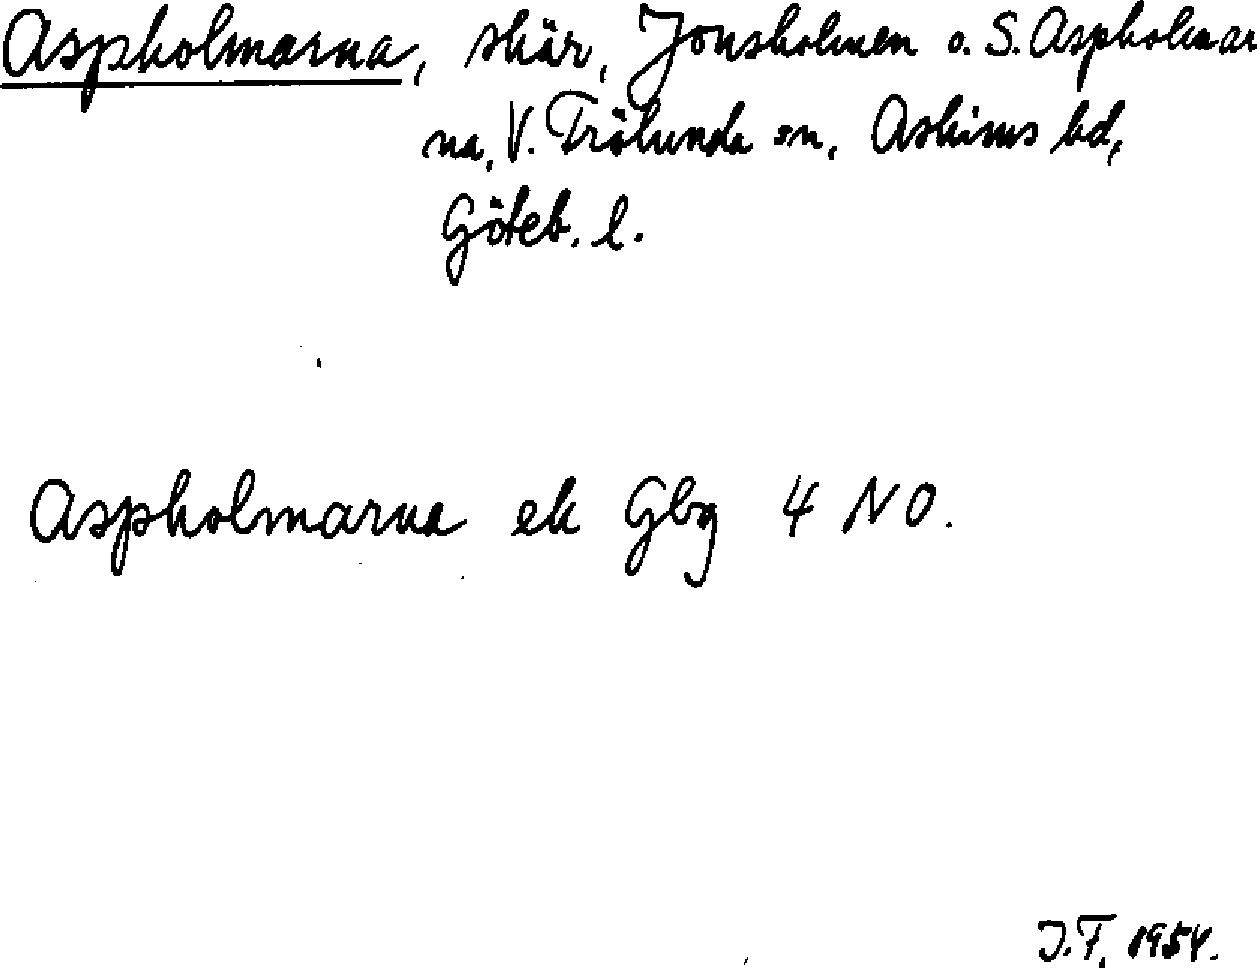 Aspholmarna, skär, Jonsholmen o. S. Aspholmar
na, V. Frölunda sn, Askims hd,
Göteb. l.
Aspholmarna ek Gbg 4 NO.
J.F. 1954.